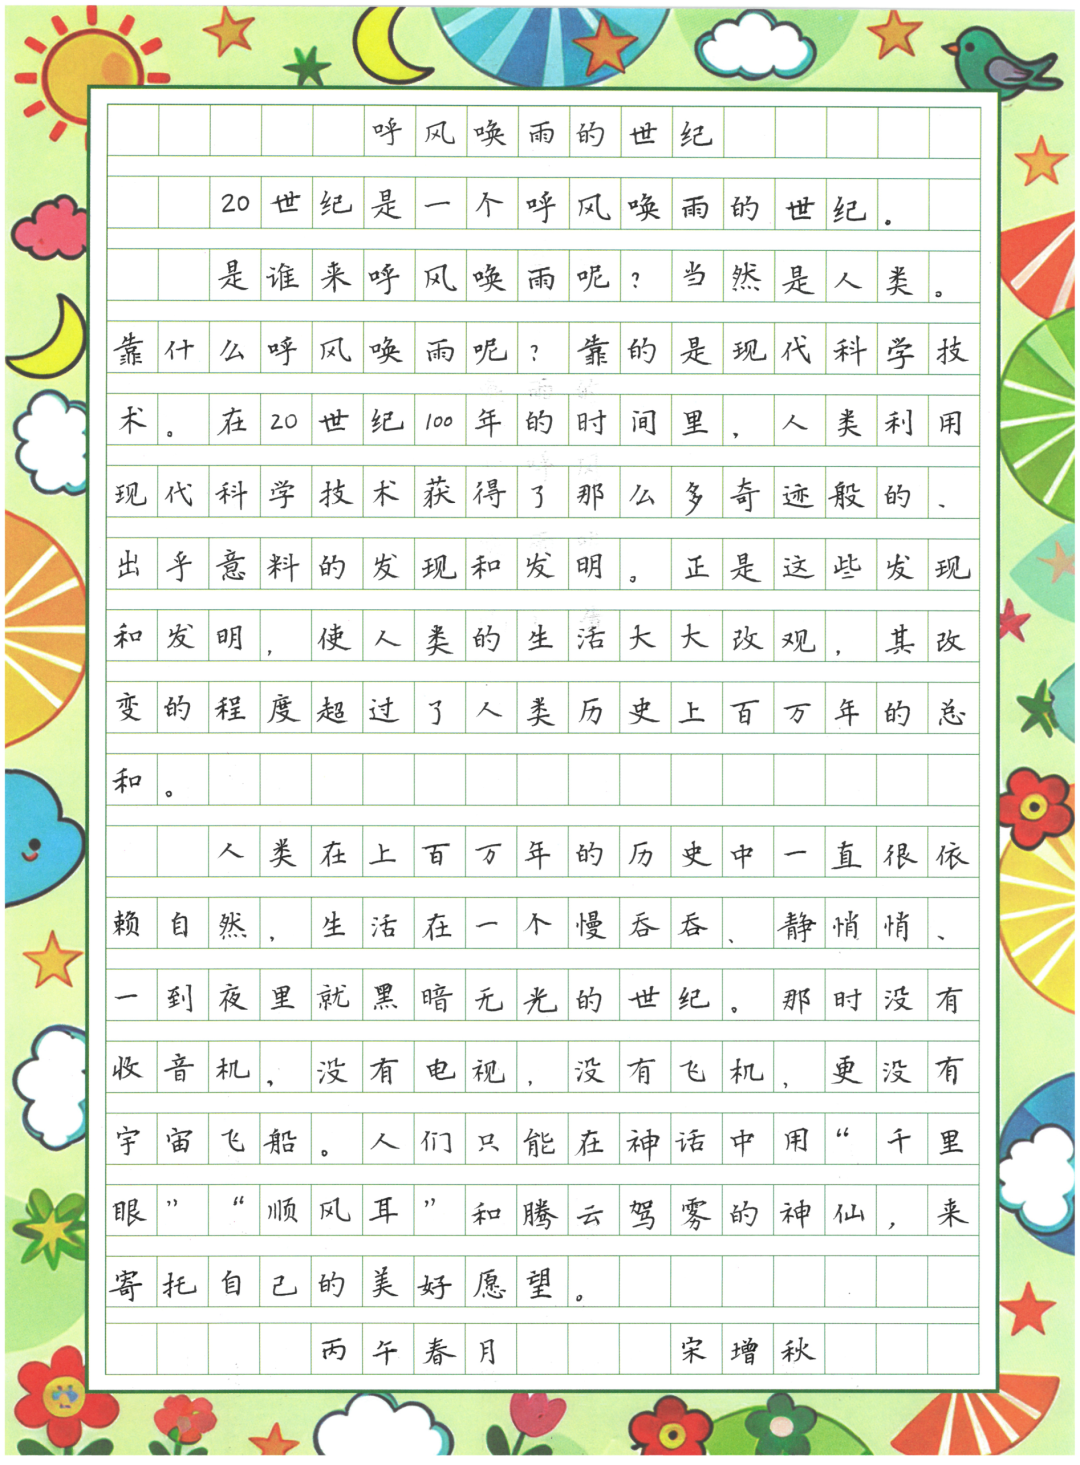 呼风唤雨的世纪
20世纪是一个呼风唤雨的世纪。
是谁来呼风唤雨呢？当然是人类。
靠什么呼风唤雨呢？靠的是现代科学技
术。在20世纪100年的时间里，人类利用
现代科学技术获得了那么多奇迹般的、
出乎意料的发现和发明。正是这些发现
和发明，使人类的生活大大改观，其改
变的程度超过了人类历史上百万年的总
和。
人类在上百万年的历史中一直很依
赖自然，生活在一个慢吞吞、静悄悄、
一到夜里就黑暗无光的世纪。那时没有
收音机，没有电视，没有飞机，更没有
宇宙飞船。人们只能在神话中用“千里
眼”“顺风耳”和腾云驾雾的神仙，来
寄托自己的美好愿望。
丙午春月 宋增秋